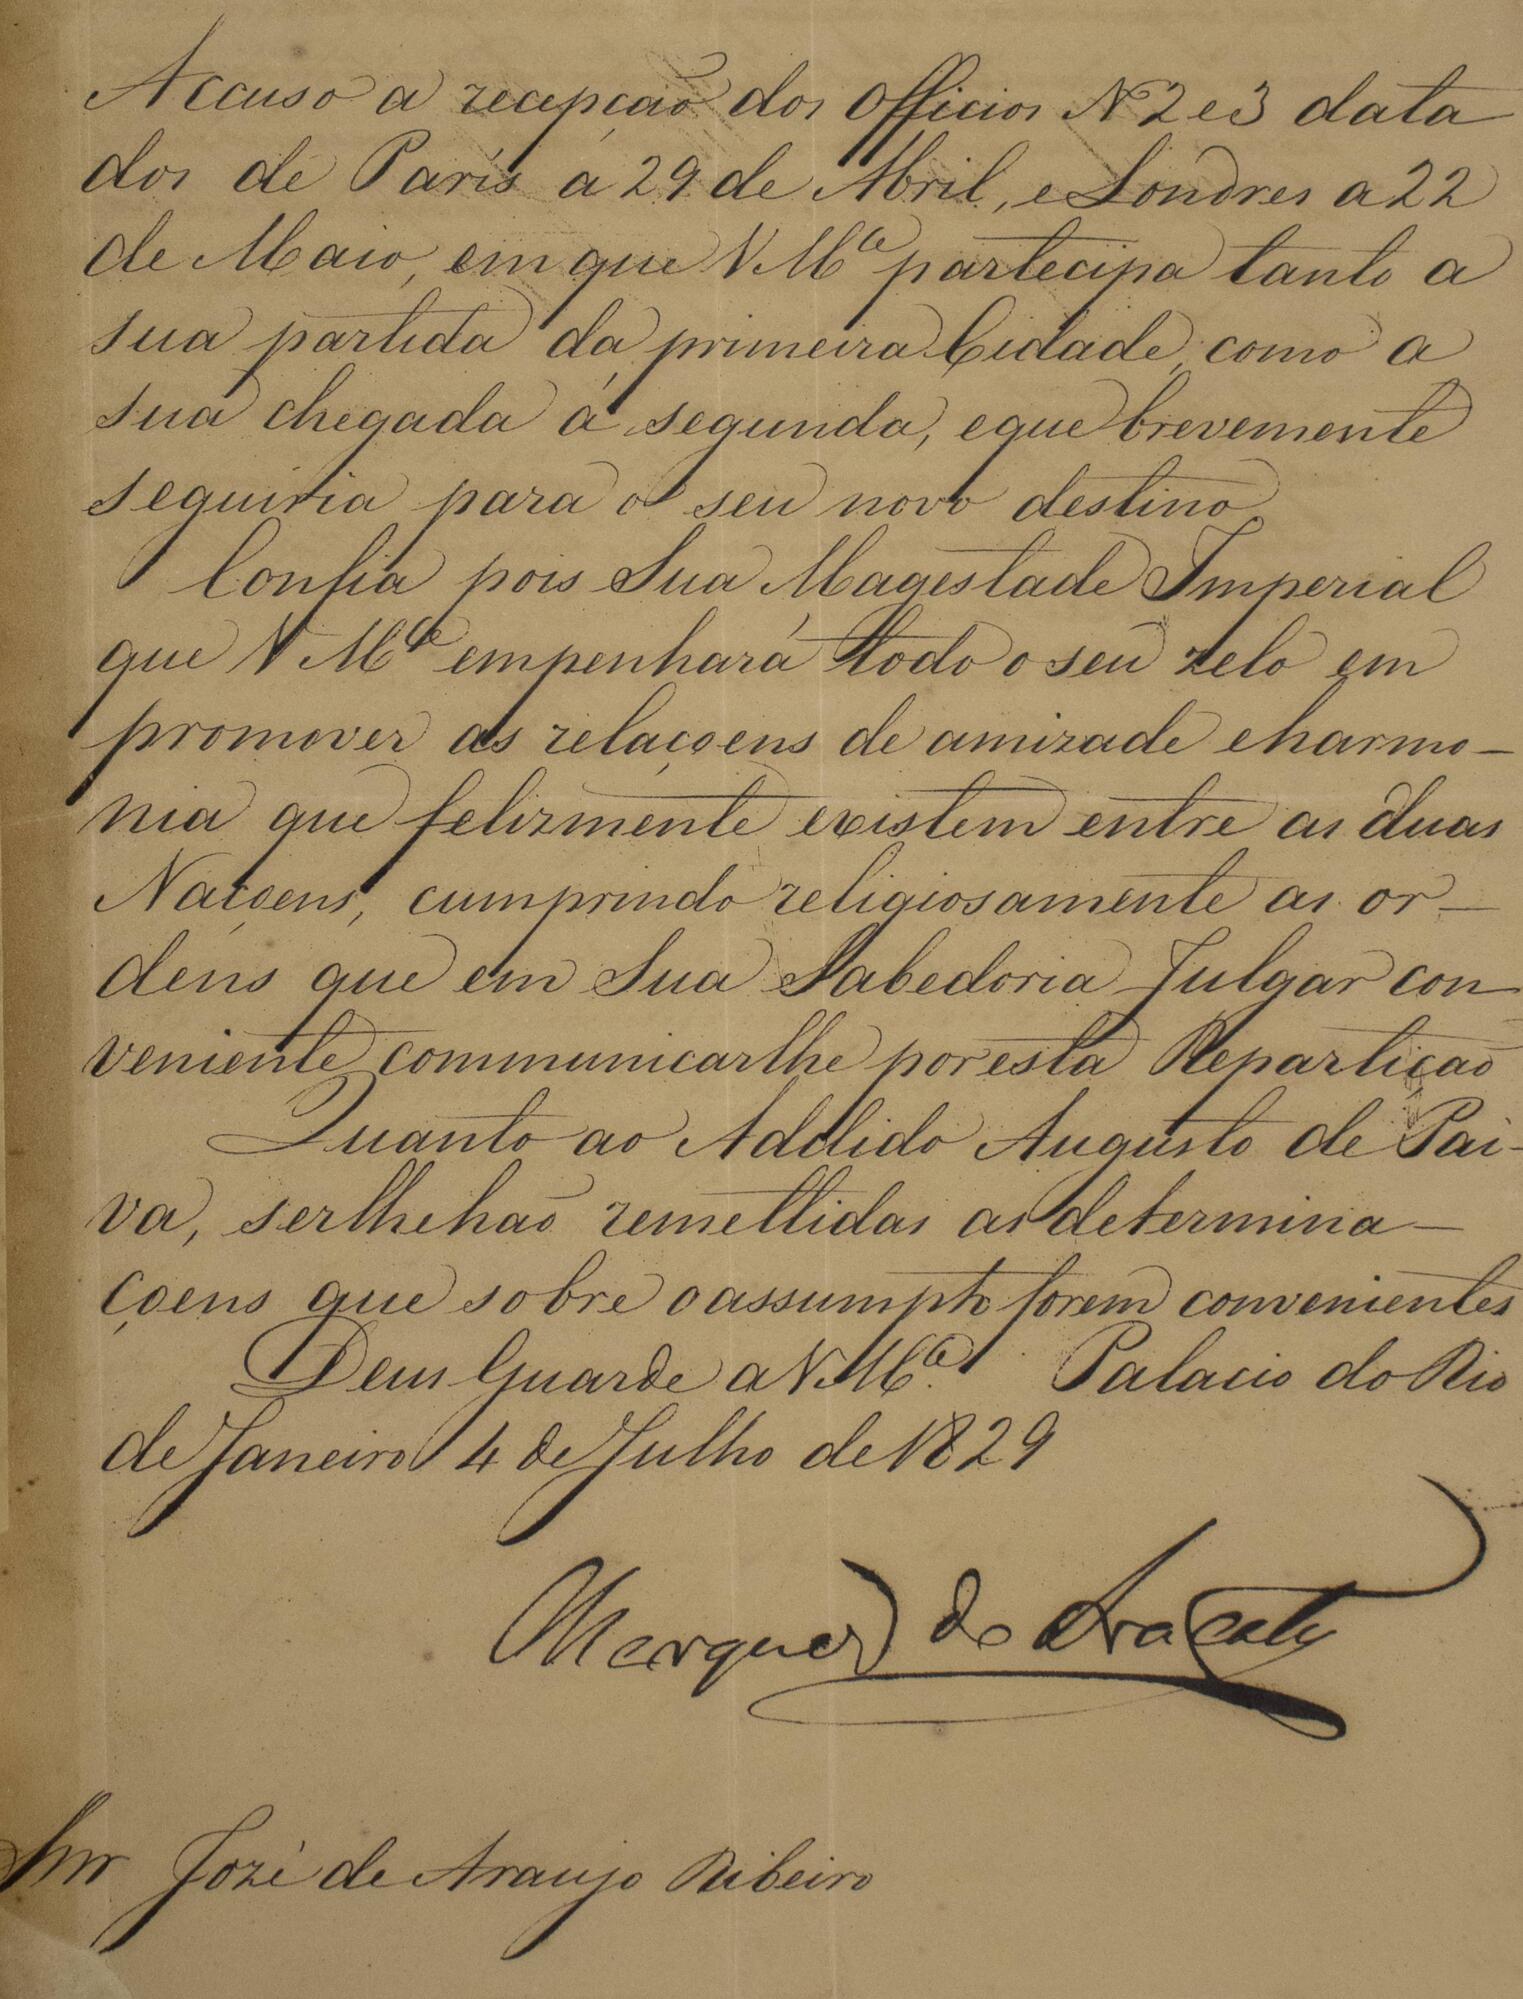 Accuso a recepção dos Officios N 2 e 3 data
dos de París a 29 de Abril, e Londres a 22
de Maio, em que V Mce partecipa tanto a
sua partida da primeira Cidade, como a
sua chegada á segunda, e que brevemente
seguiria para o seu novo destino
Confia pois Sua Magestade Imperial
que V Mce empenhará todo o seu zelo em
promover as relaçoens de amizade e harmo-
nia que felizmente existem entre as duas
Naçoens, cumprindo religiosamente as or-
dens que em Sua Sabedoria Julgar con-
veniente communicarlhe por esta Repartição
Quanto ao Addido Augusto de Pai-
va, serlhehaõ remettidas as determina-
çoens que sobre o assumpto forem convenientes
Deus Guarde a V Mce. Palacio do Rio
de Janeiro 4 de Julho de 1829
Marquez de Aracaty
Snr Jozé de Araujo Ribeiro